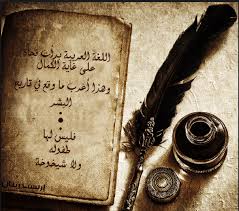 اللغة العربية بدأت فجأة
على غاية الكمال
وهذا أغرب ما وقع في تاريخ
البشر
فليس لها
طفولة
ولا شيخوخة
إرنست رينان